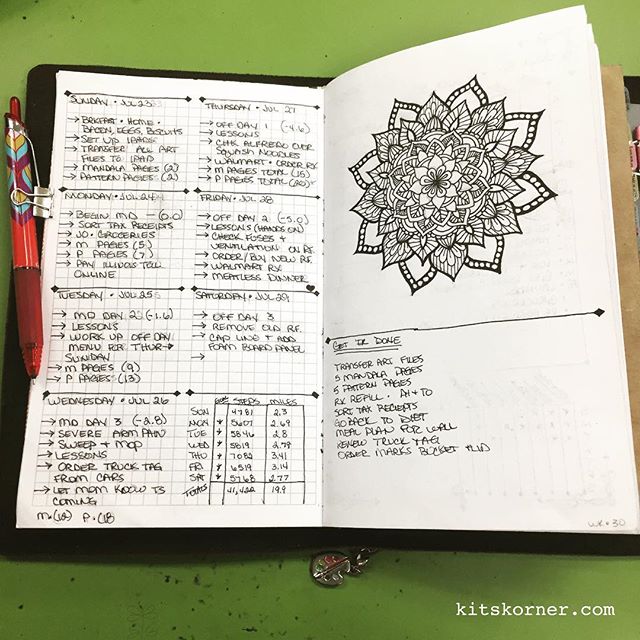 SUNDAY • JUL 23
→ BRKFAST • HOME •
BACON, EGGS, BISCUITS
→ SET UP IPADS
→ TRANSFER ALL ART
FILES TO IPAD
→ MANDALA PAGES (2)
→ PATTERN PAGES (2)
MONDAY • JUL 24
→ BEGIN MD — (0.0)
→ SORT TAX RECEIPTS
→ JO • GROCERIES
→ M PAGES (5)
→ P PAGES (7)
→ PAY ILLINOIS TOLL
ONLINE
TUESDAY • JUL 25
→ MD DAY 2 (-1.6)
→ LESSONS
→ WORK UP OFF DAY
MENU FOR THUR →
SUNDAY
→ M PAGES (9)
→ P PAGES (13)
WEDNESDAY • JUL 26
→ MD DAY 3 (-2.8)
→ SEVERE ARM PAIN
→ SWEEP & MOP
→ LESSONS
→ ORDER TRUCK TAG
FROM CARS
→ LET MOM KNOW TS
COMING
M • (12) P • (18
THURSDAY • JUL 27
→ OFF DAY 1 (-4.6)
→ LESSONS
→ CHK ALFREDO OVER
SQUASH NOODLES
→ WALMART • ORDER RX
→ M PAGES TOTAL (15)
→ P PAGES TOTAL (20)
FRIDAY • JUL 28
→ OFF DAY 2 (-5.0)
→ LESSONS (HANDS ON)
→ CHECK FUSES &
VENTILATION ON RF.
→ ORDER/BUY NEW RF.
→ WALMART RX
→ MEATLESS DINNER
SATURDAY • JUL 29
→ OFF DAY 3
→ REMOVE OLD RF.
→ CAP LINE & ADD
FOAM BOARD PANEL
→
STEPS MILES
SUN 4781 2.3
MON 5607 2.69
TUE 5846 2.8
WED 5819 2.79
THU 7082 3.41
FRI 6519 3.14
SAT 5768 2.77
TOTALS 41,422 19.9
GET 'ER DONE
TRANSFER ART FILES
5 MANDALA PAGES
5 PATTERN PAGES
RX REFILL • AH & TO
SORT TAX RECEIPTS
GO BACK TO DIET
MEAL PLAN FOR
RENEW TRUCK TAG
ORDER MARKS BUCKET & LID
WK • 30
kitskorner.com